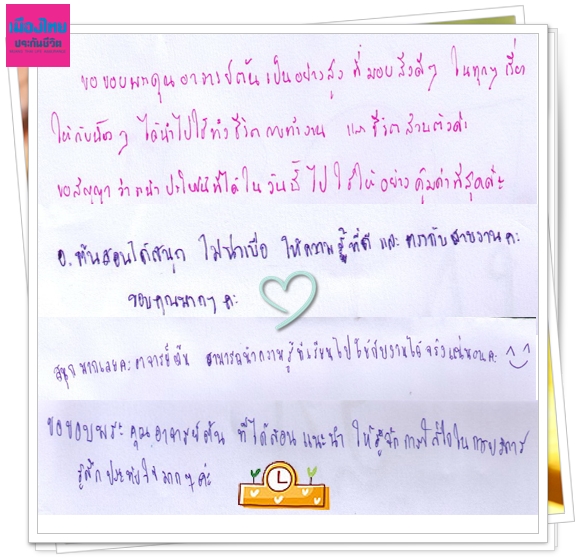 เมืองไทย
ประกันชีวิต
ขอขอบพระคุณอาจารย์ต้นเป็นอย่างสูง ที่มอบสิ่งดีๆ ในทุกๆ เรื่อง
ให้กับน้องๆ ได้นำไปใช้ทั้งชีวิตการทำงาน และชีวิตส่วนตัวค่ะ
ขอสัญญาว่าจะนำประโยชน์ที่ได้ในวันนี้ไปใช้ให้อย่างคุ้มค่าที่สุดค่ะ
อ.ต้นสอนได้สนุก ไม่น่าเบื่อ ให้ความรู้ที่ดี และตรงกับสายงานค่ะ
ขอบคุณมากๆ ค่ะ
สนุกมากเลยคะอาจารย์ต้น สามารถนำความรู้ที่เรียนไปใช้กับงานได้จริงแน่นอนคะ ^_^
ขอขอบพระคุณ อาจารย์ต้น ที่ได้สอน แนะนำ ให้รู้จักการใส่ใจในการบริการ
รู้สึกประทับใจมากๆ ค่ะ